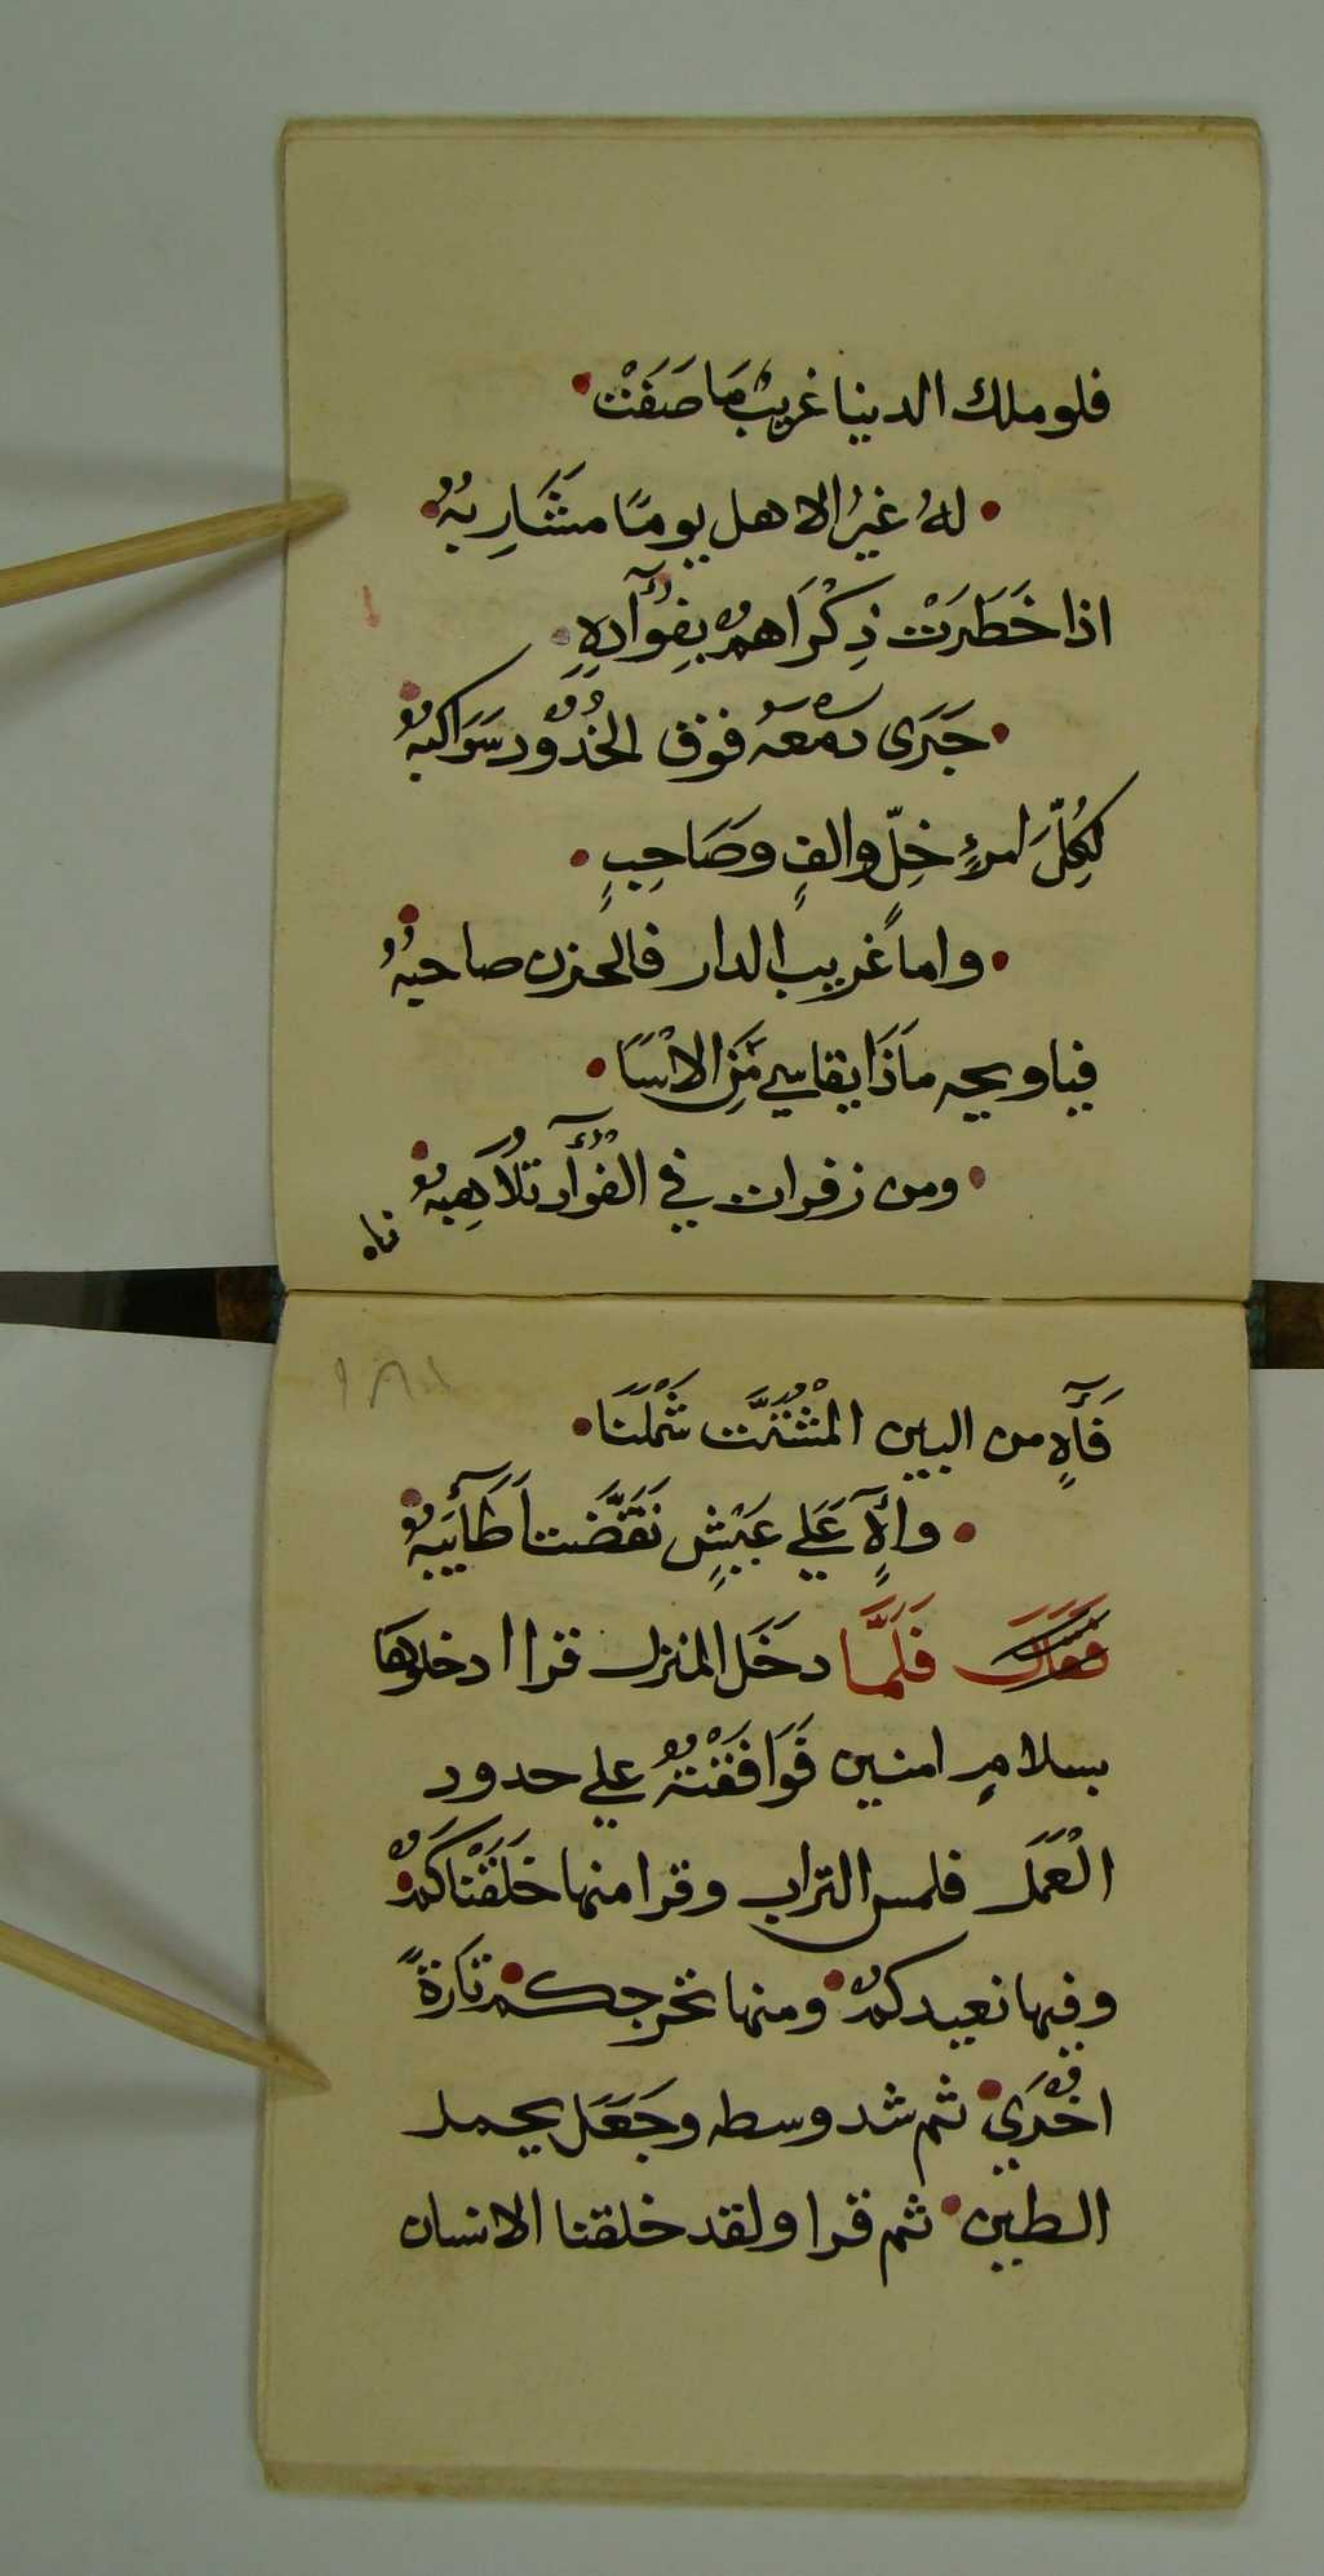 فلو ملك الدنيا غريبٌ مَا صَفَتْ
له غيرُ الاهل يومًا مشَارِبهُ
اذا خَطَرَتْ ذِكْرَاهمُ بِفُؤآدِهِ
جَرَى دمْعهُ فوق الخُدُود سَوَاكبهُ
لِكُلِّ امرءٍ خِلّ والفٍ وصَاحِبٍ
واما غريب الدار فالحزن صاحبهُ
فياويحه مَاذَا يقاسي مِّنَ الاسَا
ومن زفرات في الفؤآد تلَاهِبهُ
فاه
فَأٓهٍ من البين المُشْتّت شَمْلَنَا
واهٍ عَلي عَيْشٍ تَقَضَّت اَطَآيبهُ
فقال فَلَمَّا دخَل المنزل قرا ادخلوها
بسلامٍ امنين فَوَافَقْتهُ علي حدود
الْعَمَل فلمس التراب وقرا منها خلَقْنَاكمْ
وفيها نعيدكمْ ومنها نخرجكم تَارَةً
اخْرَي ثم شد وسطه وجَعَل يحمل
الطين ثم قرا ولقد خلقنا الانسان